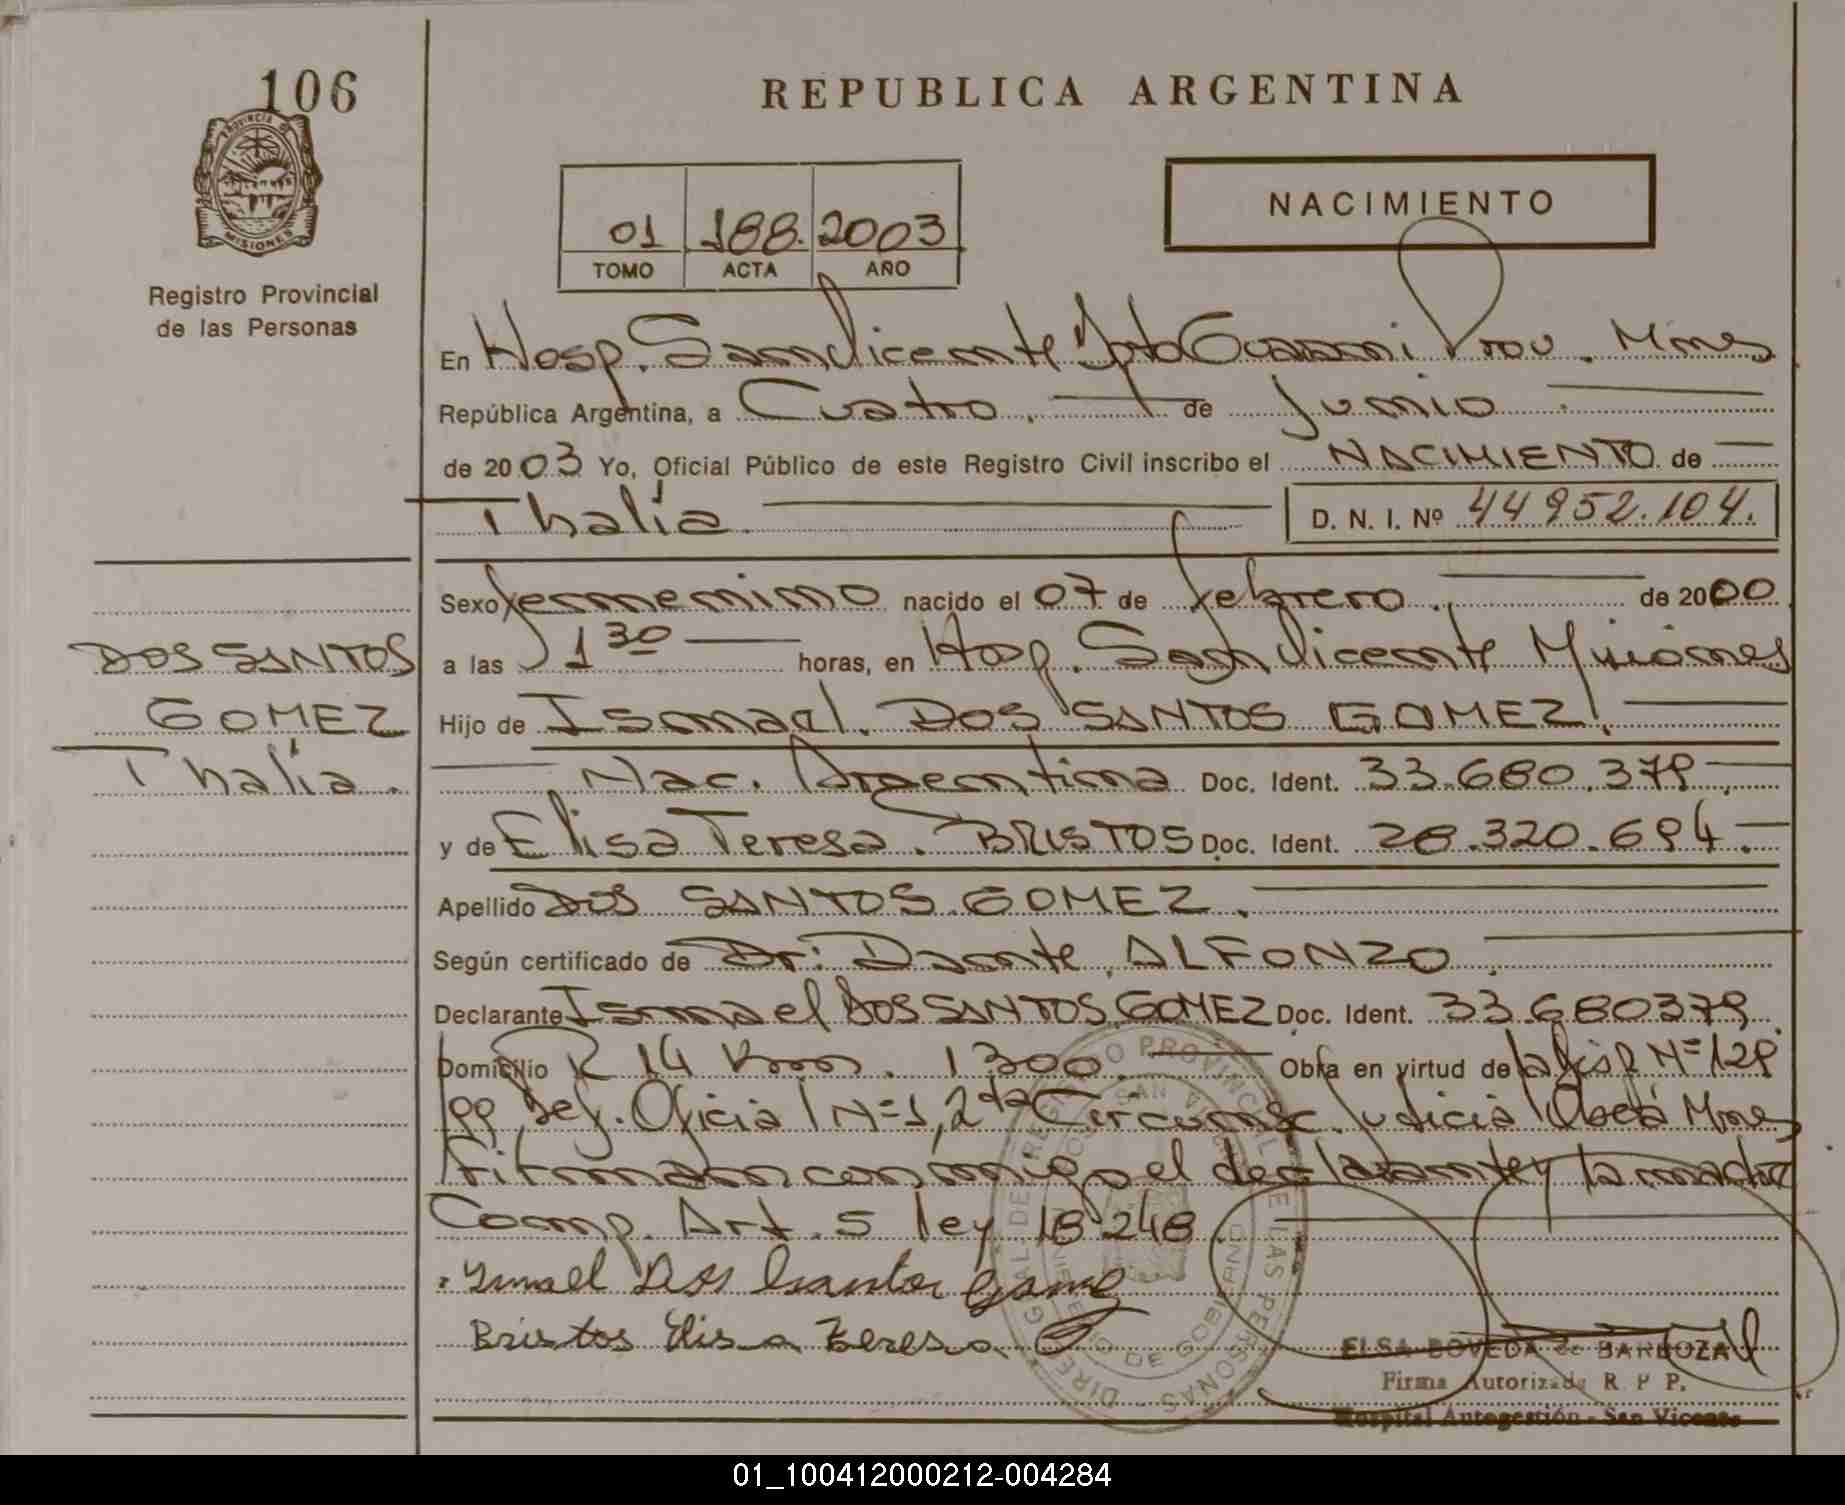 106
REPUBLICA ARGENTINA
PROVINCIA DE
MISIONES
Registro Provincial
de las Personas
01 188. 2003
TOMO ACTA AÑO
NACIMIENTO
En Hosp. San Vicente Dpto Guarani Prov. Mnes
República Argentina, a Cuatro. de Junio
de 2003 Yo, Oficial Público de este Registro Civil inscribo el NACIMIENTO de
Thalía D. N. I. Nº 44 952.104.
Sexo femenino nacido el 07 de febrero. de 2000
a las 1 30 horas, en Hosp. San Vicente Misiones
Hijo de Ismael. DOS SANTOS GOMEZ.
Nac. Argentina Doc. Ident. 33.680.379
y de Elisa Teresa. BRISTOS Doc. Ident. 28.320.694.
Apellido DOS SANTOS GOMEZ.
Según certificado de Dr: Dante ALFONZO
Declarante Ismael DOS SANTOS GOMEZ Doc. Ident. 33.680379
Domicilio R 14 Km. 1300. Obra en virtud de la Nº 129
Def. Oficial Nº 1, 2da Circunsc. Judicial Oberá Mnes
Firman conmigo el declarante y la madre
Comp. Art. 5 ley 18248
DOS SANTOS
GOMEZ
Thalía.
Ismael Dos Santos Gomez
Bristos Elisa Teresa
ELSA BOVEDA de BARBOZA
Firma Autorizada R. P. P.
Hospital Autogestión - San Vicente
01_100412000212-004284